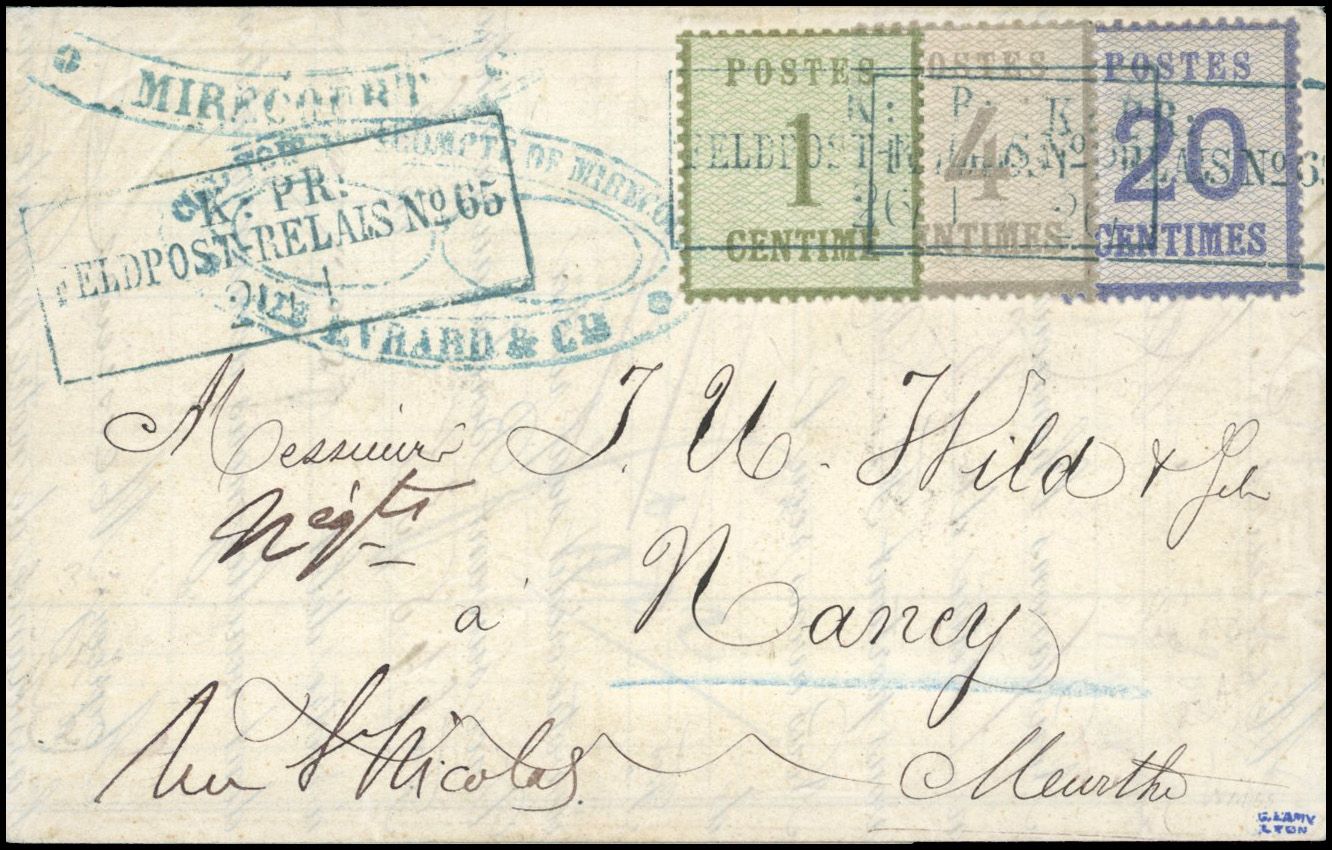 MIRECOURT
COMPTE DE MIRECO
EVRARD & CIE
K: PR:
FELDPOST-RELAIS No 65
POSTES
1
CENTIME
POSTES
4
CENTIMES
POSTES
20
CENTIMES
K: PR:
FELDPOST
26 1
K: PR:
RELAIS No 65
Messieurs J. U. Wild &
Négts
à Nancy
Rue St Nicolas
Meurthe
G. LAMY
LYON